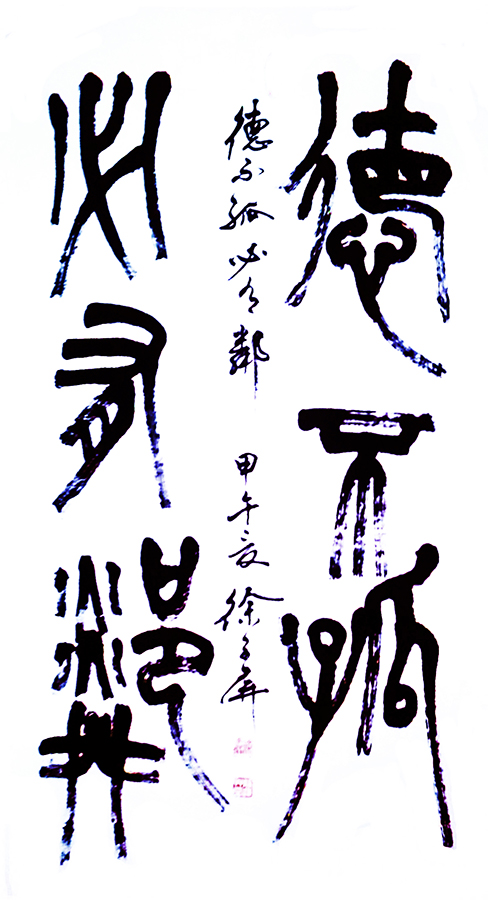 德不孤
德不孤必有鄰 甲午夏徐子屏
必有鄰